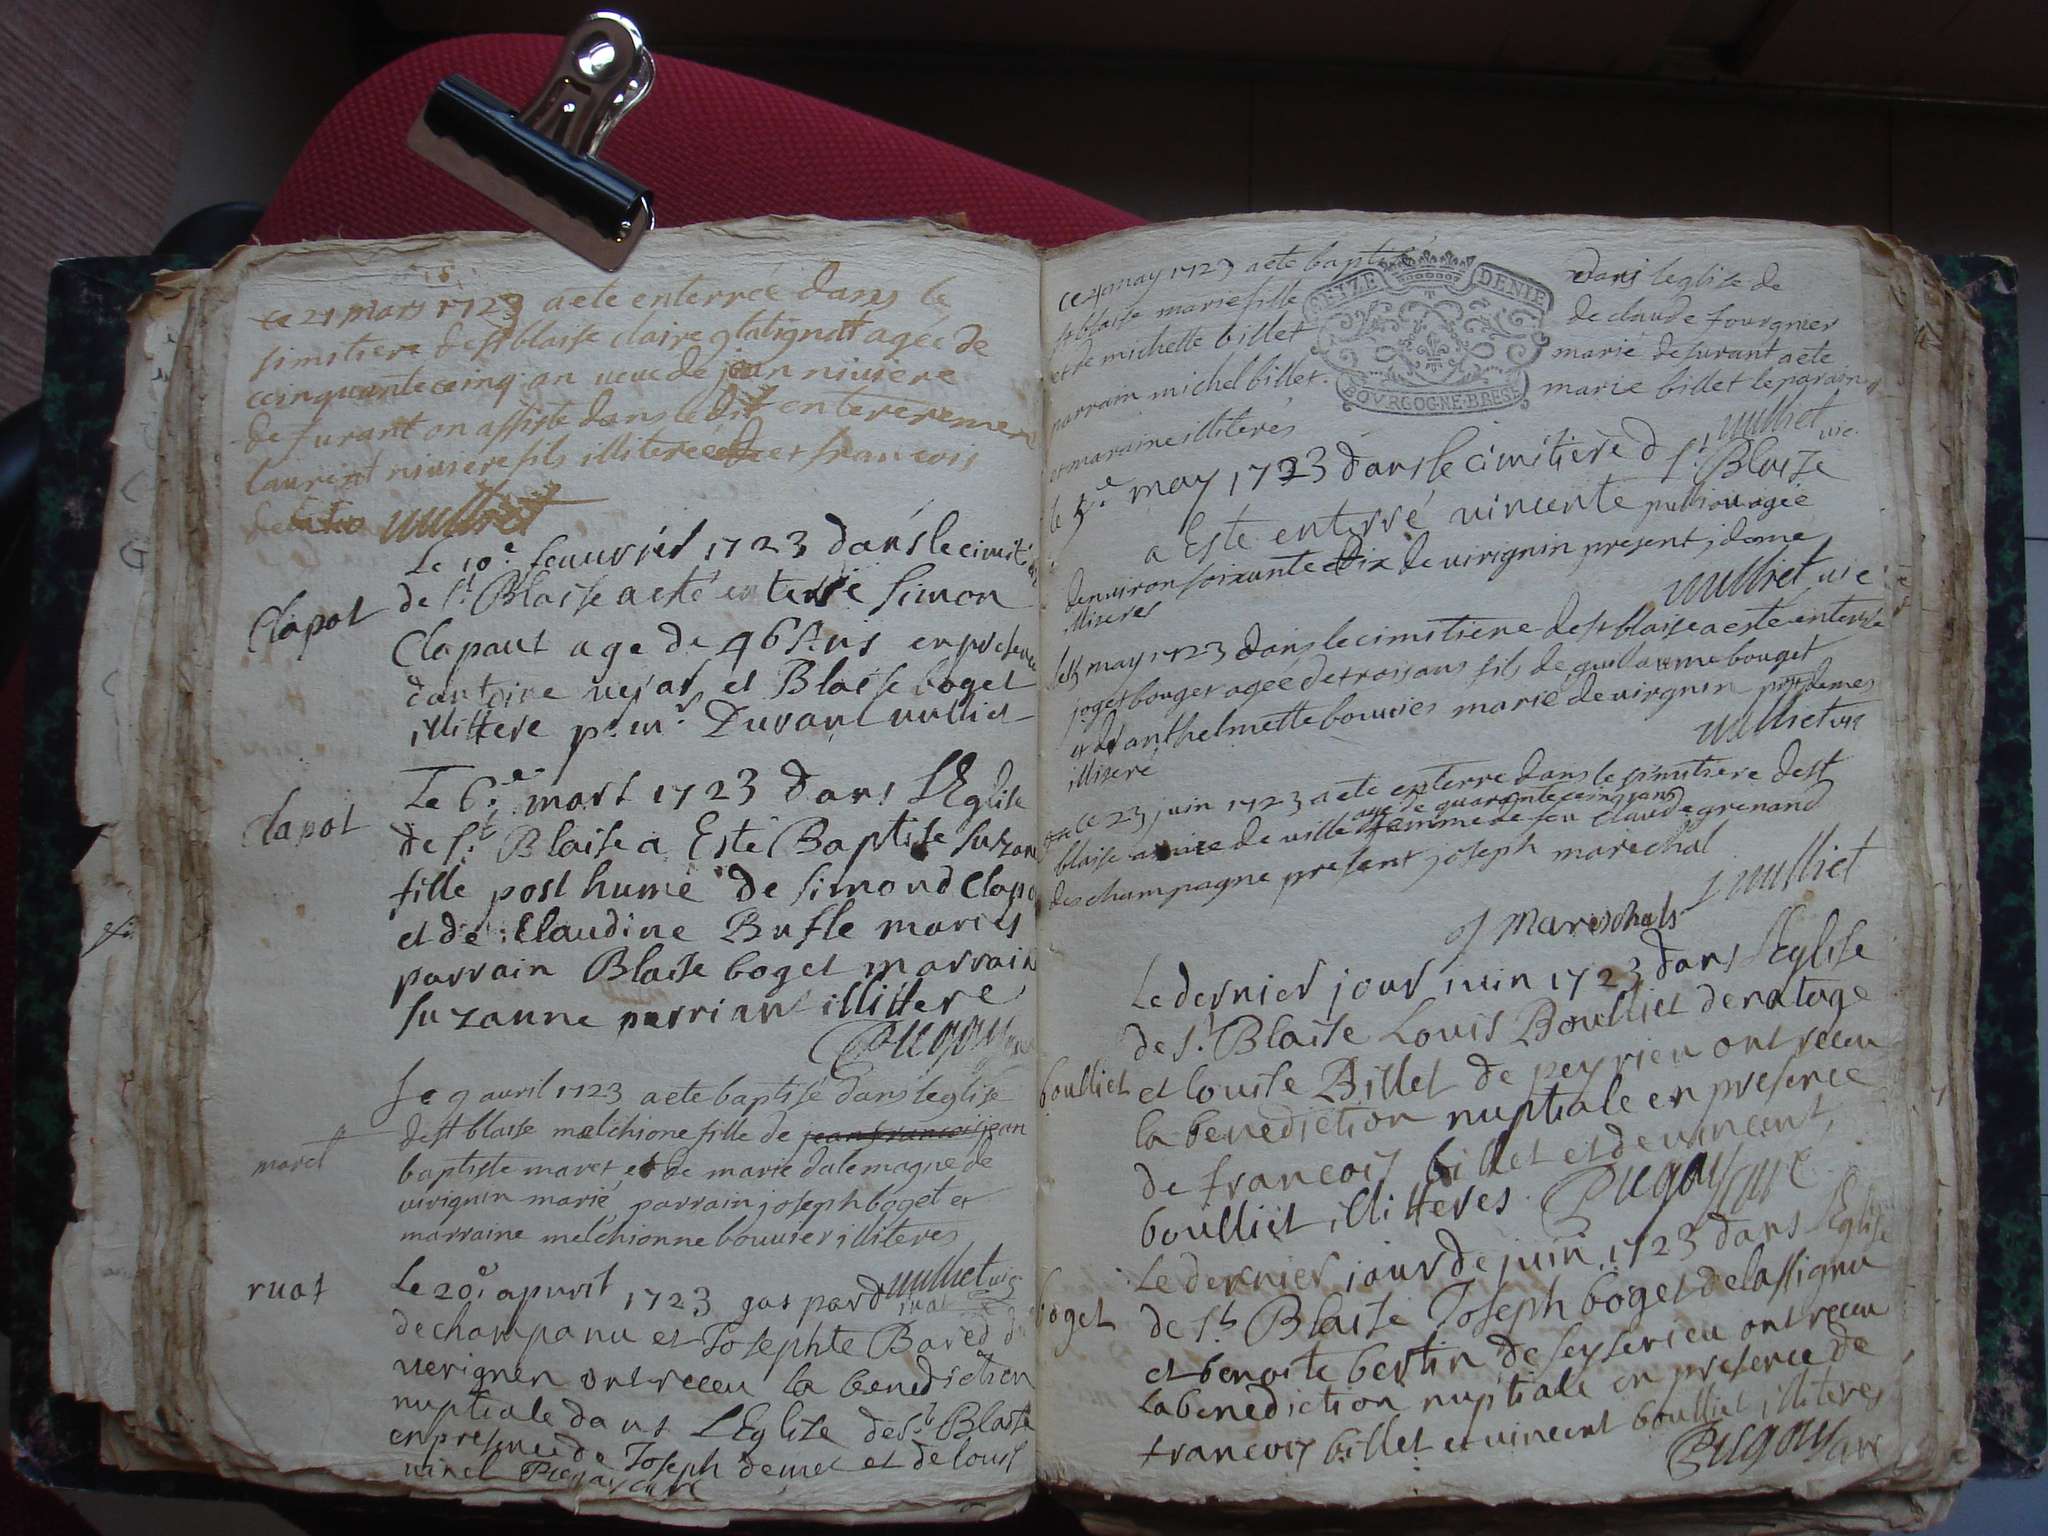 ce 21 mars 1723 a ete enterrée dans le
simitiere de st blaise claire agée de
cinquante cinq an veuve de jean niviere
de surant on assiste dans le dit enterrement
laurent niviere fils illiterée et francois
vulliet
Le 10e feuvrier 1723 dans le cimit
de st Blaise a esté enterré Simon
Clapot
Clapaut age de 46 Ans en presence
dantoine et Blaise boget
illittere pr mr Duran vulliet
Le 6e mars 1723 dans L'Eglise
Clapot
de St Blaise a Esté Baptise Suzane
fille post hume de Simond Clapo
et de Claudine Bufle maries
parrain Blaise boget marrain
Suzanne perrian illittere
Pugoy
Le 9 avril 1723 a ete baptisé dans leglise
de st blaise melchione fille de jean francois jean
maret
baptiste maret et de marie dalemagne de
virignin marié parrain joseph boget et
marraine melchionne bouvier illiteres
vulliet vic
ruat
Le 20e apvril 1723 gaspard ruat
de champanu et Josephte Bared de
verignin ont receu la benediction
nuptiale dans L'Eglise de St Blaise
en presence de Joseph demet et de Louis
Pugoy curé
ce 4 may 1723 a ete baptisé dans leglise de
st blaise marie fille de claude fourgnier
et de michette billet marié de surant a ete
parrain michel billet marie billet le parain
et maraine illiterés
vulliet vic
SEIZE DENIE
BOURGOGNE·BRESE
le 5e may 1723 dans le cimitière d St Blaise
a Este enterré vincente pullion agée
denviron soixante dix de virignin present, dome
illiseres
vulliet vic
may 1723 dans le cimitiere de st blaise a este enterre
bouget agée de trois ans fils de guillaume bouget
et de anthelmette bouvier marié de virgnin
illiseré
vulliet vic
ce 23 juin 1723 a ete enterre dans le simitiere de st
age de quarante cinq ans
blaise de ville femme de feu claude grenand
de champagne present joseph marechal
J vulliet
J Mareschals
Le dernier jour juin 1723 dans L'Eglise
de St Blaise Louis Boulliet de natage
boulliet
et louise Billet de peyrieu ont receu
la benediction nuptiale en presence
de francois billet et de vincent
boulliet illitteres Pugoy curé
Le dernier jour de juin 1723 dans L'Eglise
boget
de St Blaise Joseph boget de lassignu
et benoite bertin de seyserieu ont receu
la benediction nuptiale en presence de
francois billet et vincent boulliet illiteres
Pugoy curé